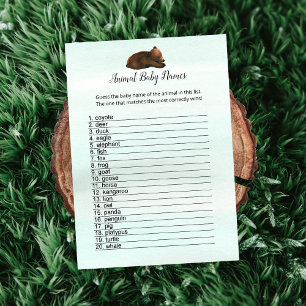 Animal Baby Names
Guess the baby name of the animal in this list.
The one that matches the most correctly wins!
1. coyote
2. deer
3. duck
4. eagle
5. elephant
6. fish
7. fox
8. frog
9. goat
10. goose
11. horse
12. kangaroo
13. lion
14. owl
15. panda
16. penguin
17. pig
18. platypus
19. turtle
20. whale